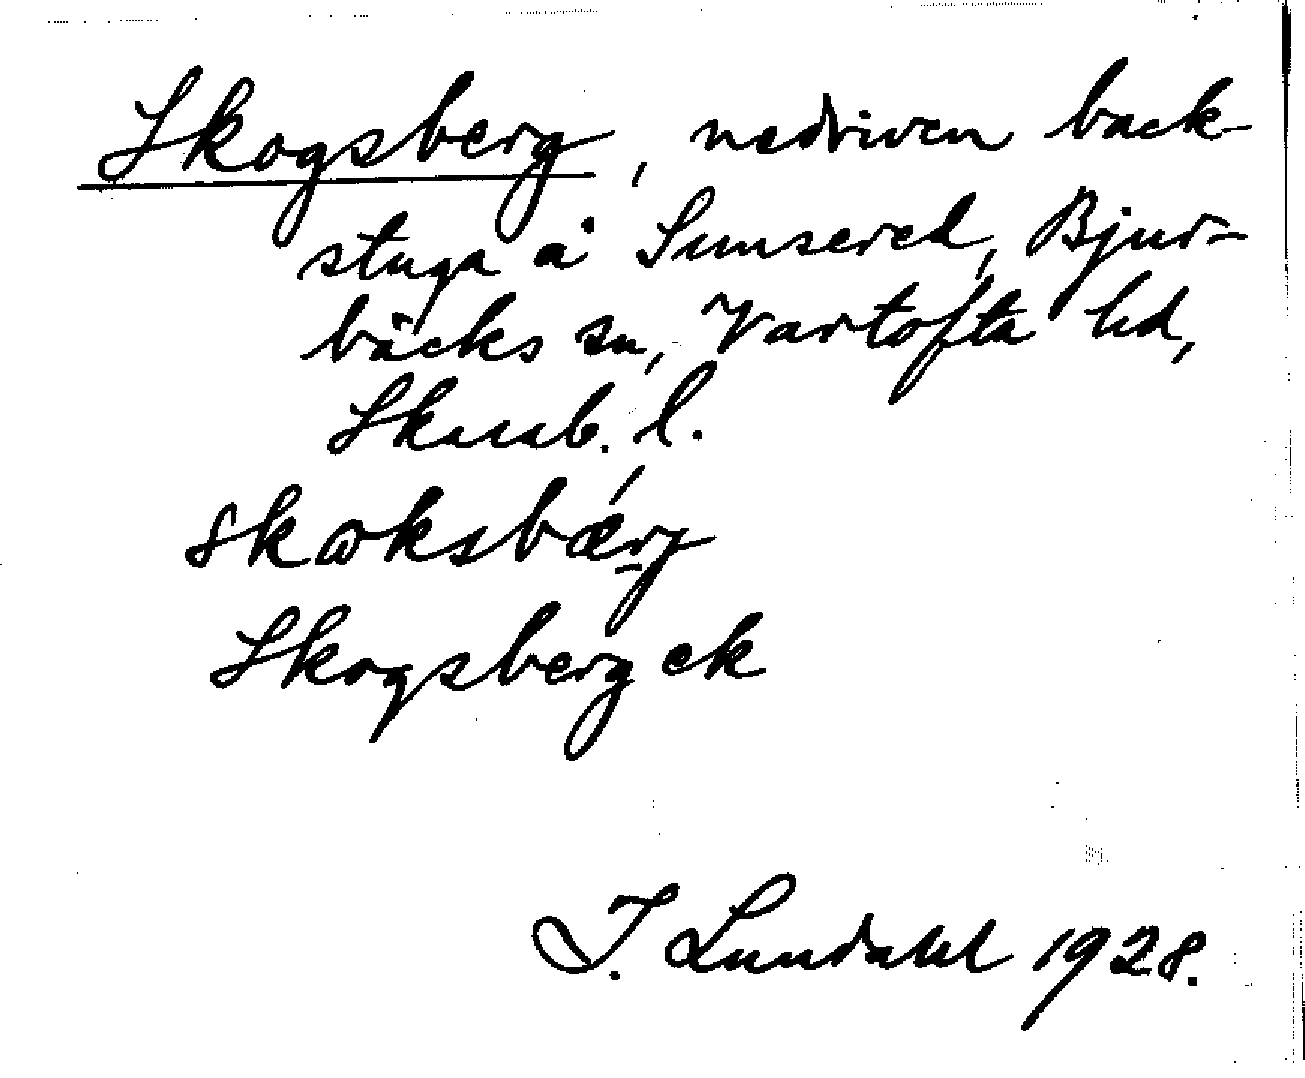 Skogsberg, nedriven back-
stuga å Sunsered, Bjur-
bäcks sn, Vartofta hd,
Skarab. l.
skɷksbæ̀rj
Skogsberg ek
I. Lundahl 1928.